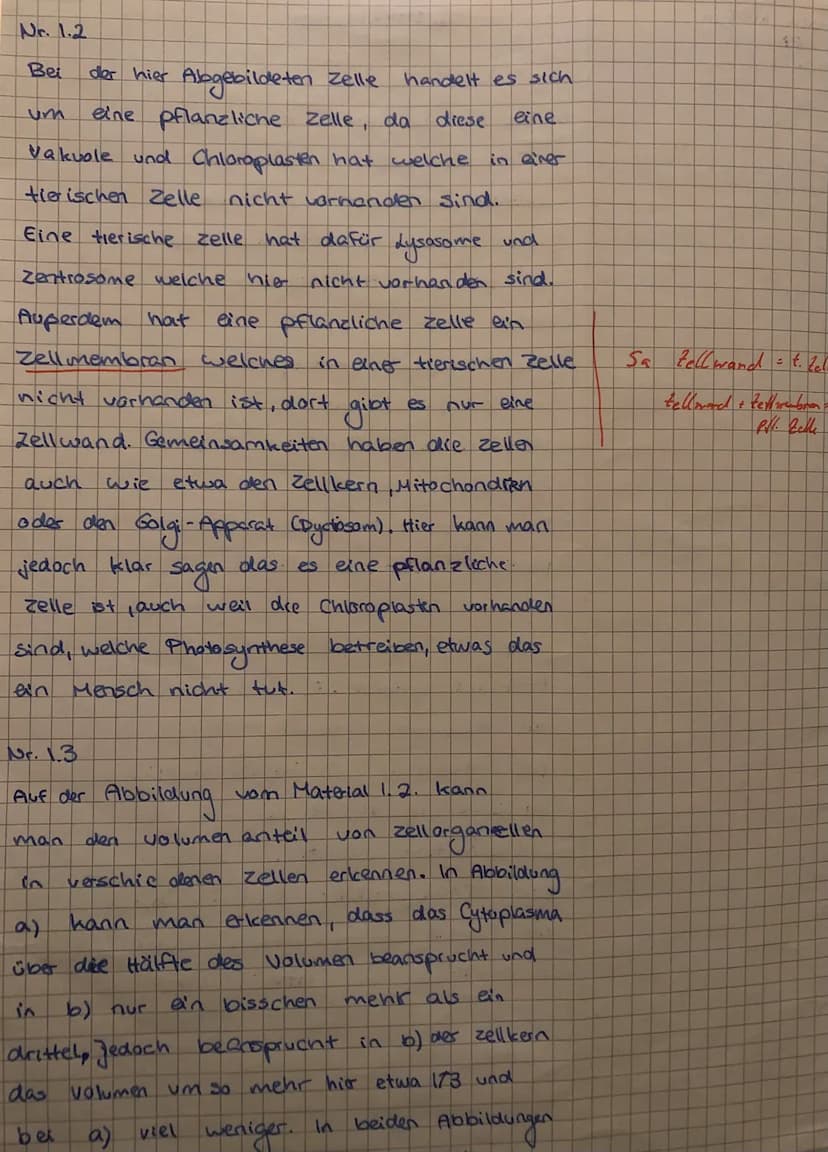 Nr. 1.2
Bei der hier Abgebildeten Zelle handelt es sich
um eine pflanzliche Zelle, da diese eine
Vakuole und Chloroplasten hat welche in einer
tierischen Zelle nicht vorhanden sind.
Eine tierische Zelle hat dafür Lysosome und
Zentrosome welche hier nicht vorhanden sind.
Außerdem hat eine pflanzliche Zelle ein
Zellmembran welches in einer tierischen Zelle
Zellwand = t. Zel
nicht vorhanden ist, dort gibt es nur eine
Zellwand + Zellmembran =
pfl. Zelle
Zellwand. Gemeinsamkeiten haben die Zellen
auch wie etwa den Zellkern, Mitochondrien
oder den Golgi-Apparat (Dyctiosom). Hier kann man
jedoch klar sagen das es eine pflanzliche
Zelle ist, auch weil die Chloroplasten vorhanden
sind, welche Photosynthese betreiben, etwas das
ein Mensch nicht tut.
Nr. 1.3
Auf der Abbildung vom Material 1.2. kann
man den Volumen anteil von Zellorganellen
in verschiedenen Zellen erkennen. In Abbildung
a) kann man erkennen, dass das Cytoplasma
über die Hälfte des Volumen beansprucht und
in b) nur ein bisschen mehr als ein
drittel, jedoch beansprucht in b) der Zellkern
das Volumen um so mehr hier etwa 1/3 und
bei a) viel weniger. In beiden Abbildungen